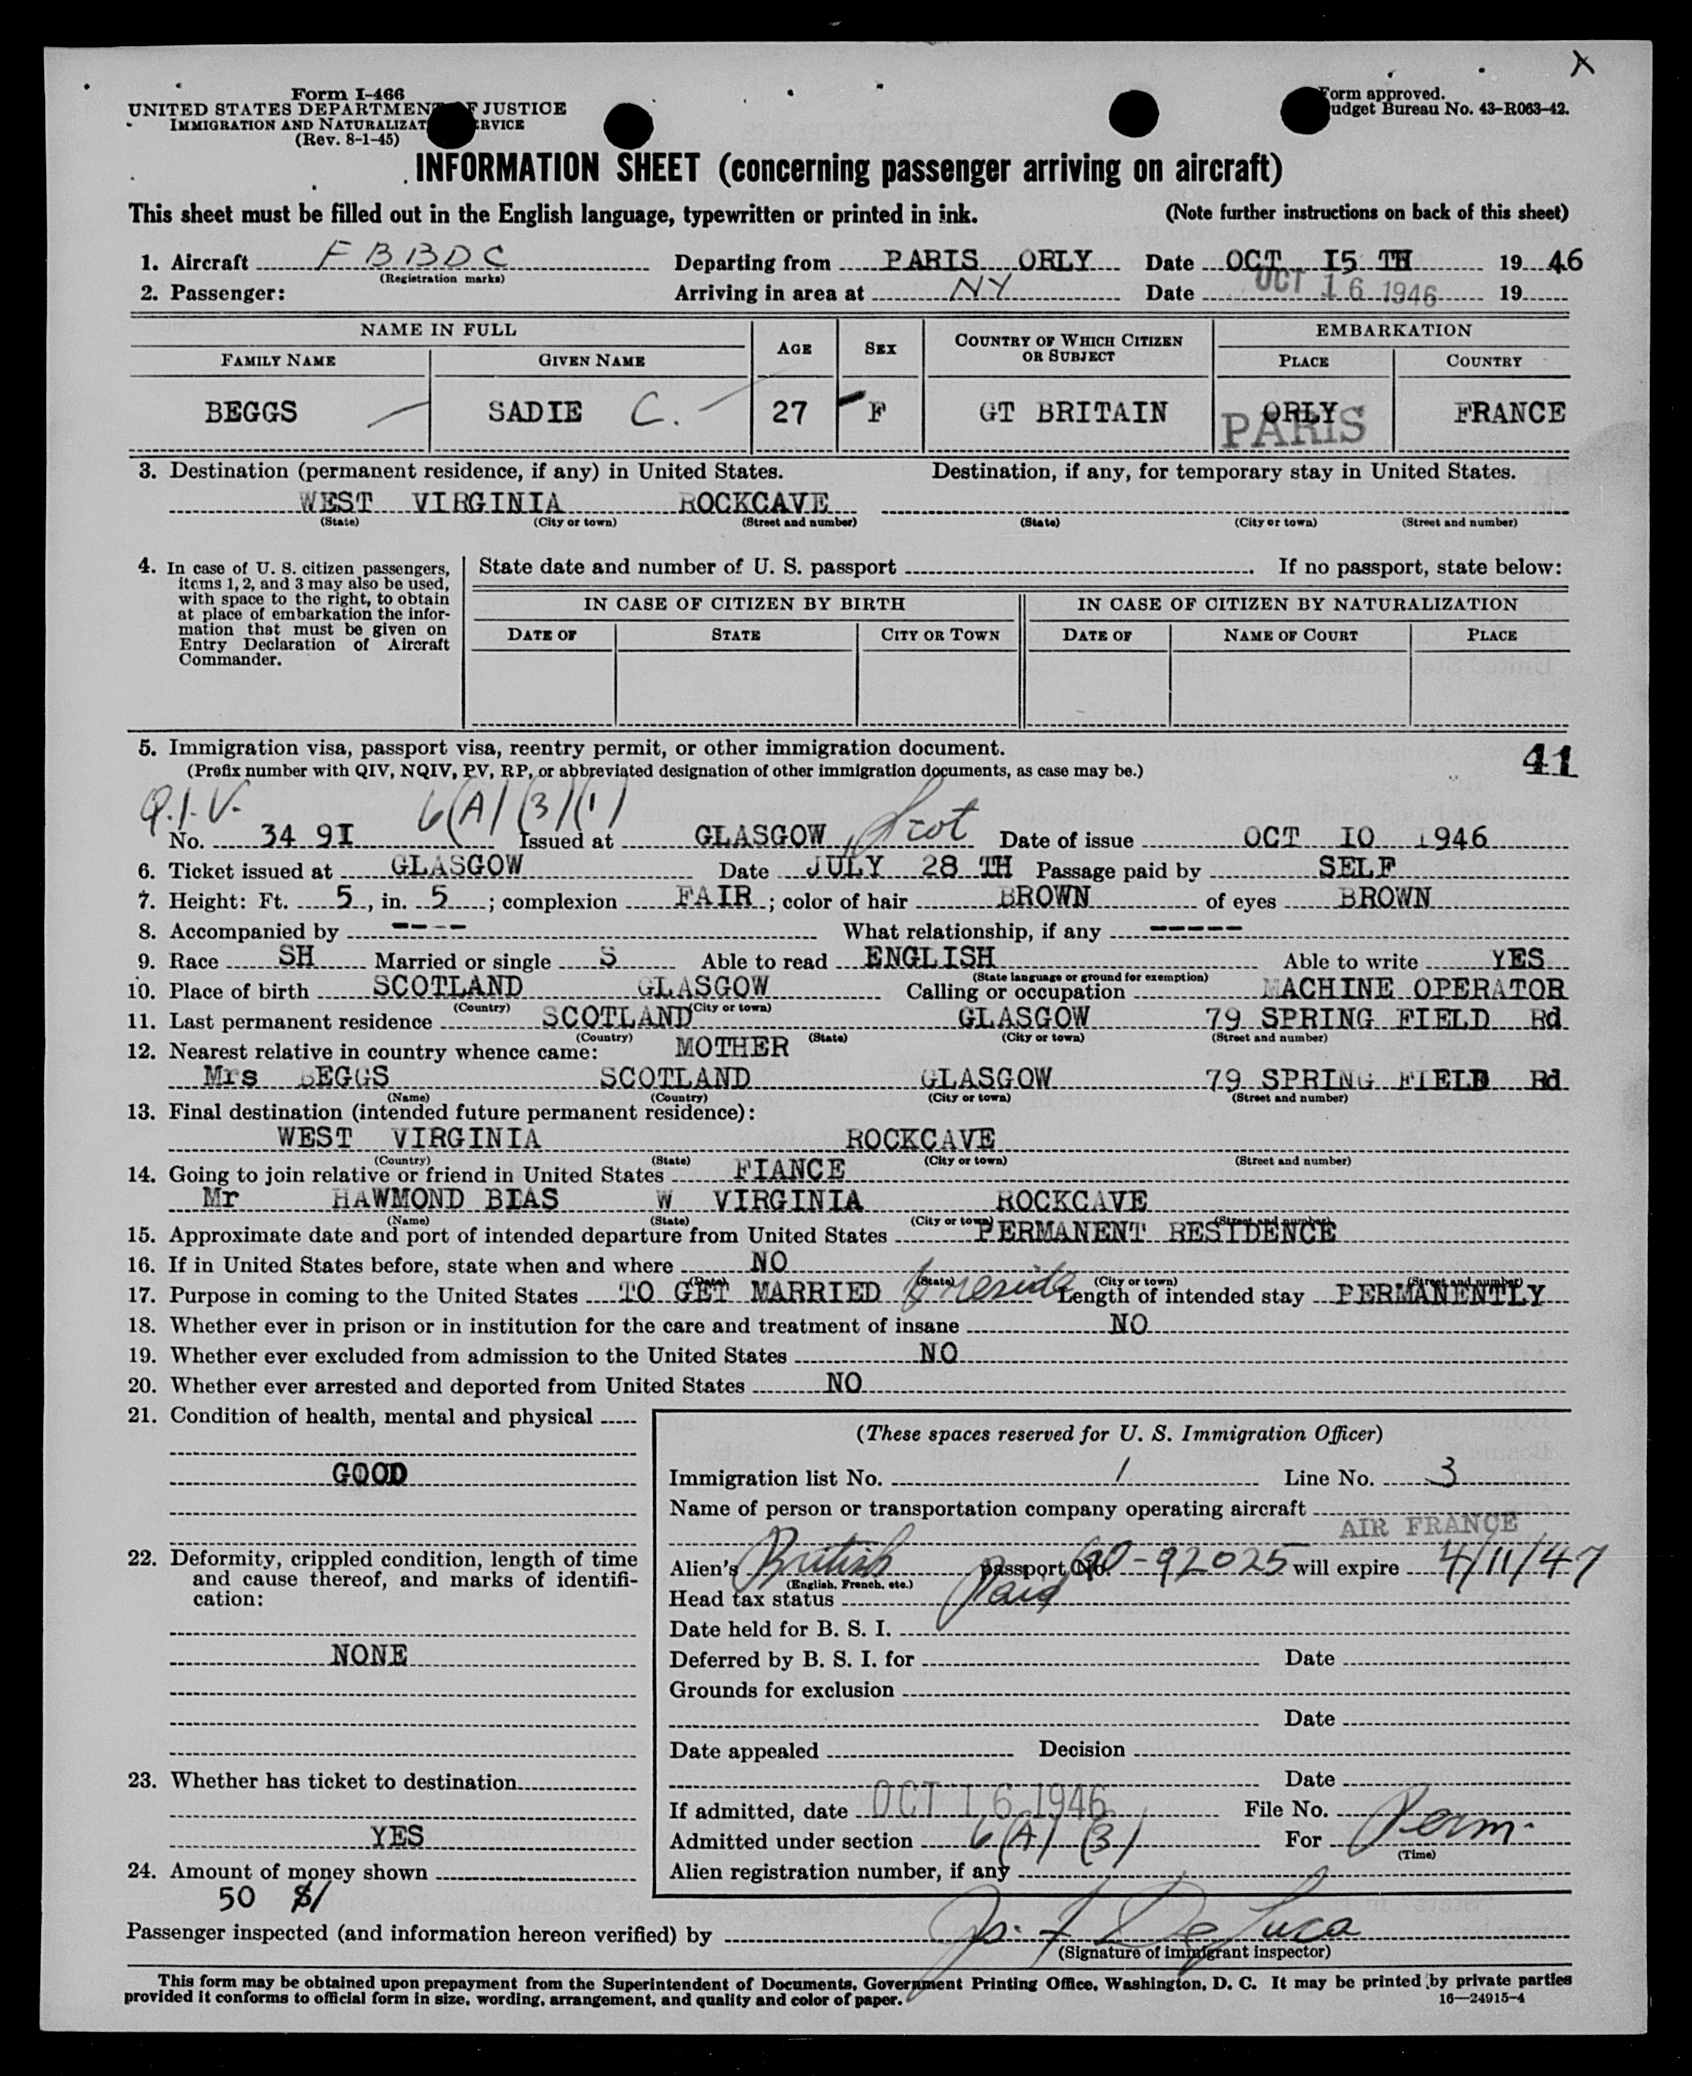 X
Form I-466
Form approved.
UNITED STATES DEPARTMENT OF JUSTICE
Budget Bureau No. 43-R063-42.
IMMIGRATION AND NATURALIZATION SERVICE
(Rev. 8-1-45)
INFORMATION SHEET (concerning passenger arriving on aircraft)
This sheet must be filled out in the English language, typewritten or printed in ink. (Note further instructions on back of this sheet)
1. Aircraft F B B D C Departing from PARIS ORLY Date OCT I5 TH 19 46
(Registration marks)
2. Passenger: Arriving in area at NY Date OCT 16 1946 19
NAME IN FULL AGE SEX COUNTRY OF WHICH CITIZEN OR SUBJECT EMBARKATION
FAMILY NAME GIVEN NAME PLACE COUNTRY
BEGGS SADIE C. 27 F GT BRITAIN ORLY FRANCE
PARIS
3. Destination (permanent residence, if any) in United States. Destination, if any, for temporary stay in United States.
WEST VIRGINIA ROCKCAVE
(State) (City or town) (Street and number) (State) (City or town) (Street and number)
4. In case of U. S. citizen passengers, items 1, 2, and 3 may also be used, with space to the right, to obtain at place of embarkation the information that must be given on Entry Declaration of Aircraft Commander.
State date and number of U. S. passport . If no passport, state below:
IN CASE OF CITIZEN BY BIRTH IN CASE OF CITIZEN BY NATURALIZATION
DATE OF STATE CITY OR TOWN DATE OF NAME OF COURT PLACE
5. Immigration visa, passport visa, reentry permit, or other immigration document.
41
(Prefix number with QIV, NQIV, PV, RP, or abbreviated designation of other immigration documents, as case may be.)
Q.I.V. 6(A)(3)(1)
No. 34 9I Issued at GLASGOW, Scot Date of issue OCT IO 1946
6. Ticket issued at GLASGOW Date JULY 28 TH Passage paid by SELF
7. Height: Ft. 5, in. 5; complexion FAIR; color of hair BROWN of eyes BROWN
8. Accompanied by ---- What relationship, if any -----
9. Race SH Married or single S Able to read ENGLISH Able to write YES
(State language or ground for exemption)
10. Place of birth SCOTLAND GLASGOW Calling or occupation MACHINE OPERATOR
(Country) (City or town)
11. Last permanent residence SCOTLAND GLASGOW 79 SPRING FIELD Rd
(Country) (State) (City or town) (Street and number)
12. Nearest relative in country whence came: MOTHER
Mrs BEGGS SCOTLAND GLASGOW 79 SPRING FIELD Rd
(Name) (Country) (City or town) (Street and number)
13. Final destination (intended future permanent residence):
WEST VIRGINIA ROCKCAVE
(Country) (State) (City or town) (Street and number)
14. Going to join relative or friend in United States FIANCE
Mr HAWMOND BIAS W VIRGINIA ROCKCAVE
(Name) (State) (City or town) (Street and number)
15. Approximate date and port of intended departure from United States PERMANENT RESIDENCE
16. If in United States before, state when and where NO
(Date) (State) (City or town) (Street and number)
17. Purpose in coming to the United States TO GET MARRIED & reside Length of intended stay PERMANENTLY
18. Whether ever in prison or in institution for the care and treatment of insane NO
19. Whether ever excluded from admission to the United States NO
20. Whether ever arrested and deported from United States NO
21. Condition of health, mental and physical
GOOD
22. Deformity, crippled condition, length of time and cause thereof, and marks of identification:
NONE
23. Whether has ticket to destination
YES
24. Amount of money shown
50 $
(These spaces reserved for U. S. Immigration Officer)
Immigration list No. 1 Line No. 3
Name of person or transportation company operating aircraft
AIR FRANCE
Alien's British passport No. 90-92025 will expire 4/11/47
(English, French, etc.)
Head tax status Paid
Date held for B. S. I.
Deferred by B. S. I. for Date
Grounds for exclusion
Date
Date appealed Decision
Date
If admitted, date OCT 16 1946 File No.
Admitted under section 6(A)(3) For Perm.
(Time)
Alien registration number, if any
Passenger inspected (and information hereon verified) by Jos. F DeLuca
(Signature of immigrant inspector)
This form may be obtained upon prepayment from the Superintendent of Documents, Government Printing Office, Washington, D. C. It may be printed by private parties
provided it conforms to official form in size, wording, arrangement, and quality and color of paper. 16—24915-4